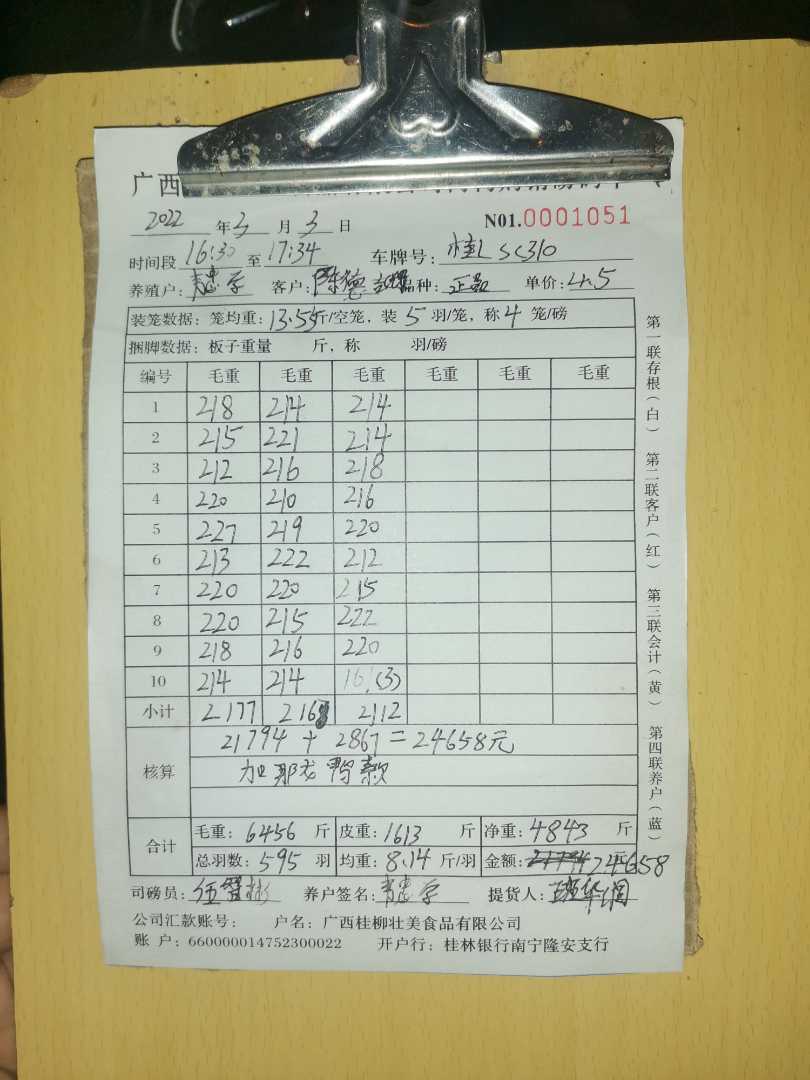 广西
2022 年 3 月 3 日 N01.0001051
时间段 16:30 至 17:34 车牌号: 桂L SC310
养殖户: 客户: 陈德 品种: 正品 单价: 4.5
装笼数据: 笼均重: 13.55斤/空笼, 装 5 羽/笼, 称 4 笼/磅
捆脚数据: 板子重量 斤, 称 羽/磅
编号 毛重 毛重 毛重 毛重 毛重 毛重
1 218 214 214
2 215 221 214
3 212 216 218
4 220 210 216
5 227 219 220
6 213 222 212
7 220 220 215
8 220 215 222
9 218 216 220
10 214 214 161(3)
小计 2177 216 2112
核算 21794 + 2867 = 24658元
加 鸭款
合计 毛重: 6456 斤 皮重: 1613 斤 净重: 4843 斤
总羽数: 595 羽 均重: 8.14 斤/羽 金额: 21794 元 24658
司磅员: 养户签名: 提货人:
公司汇款账号: 户名: 广西桂柳壮美食品有限公司
账 户: 660000014752300022 开户行: 桂林银行南宁隆安支行
第一联存根(白) 第二联客户(红) 第三联会计(黄) 第四联养户(蓝)